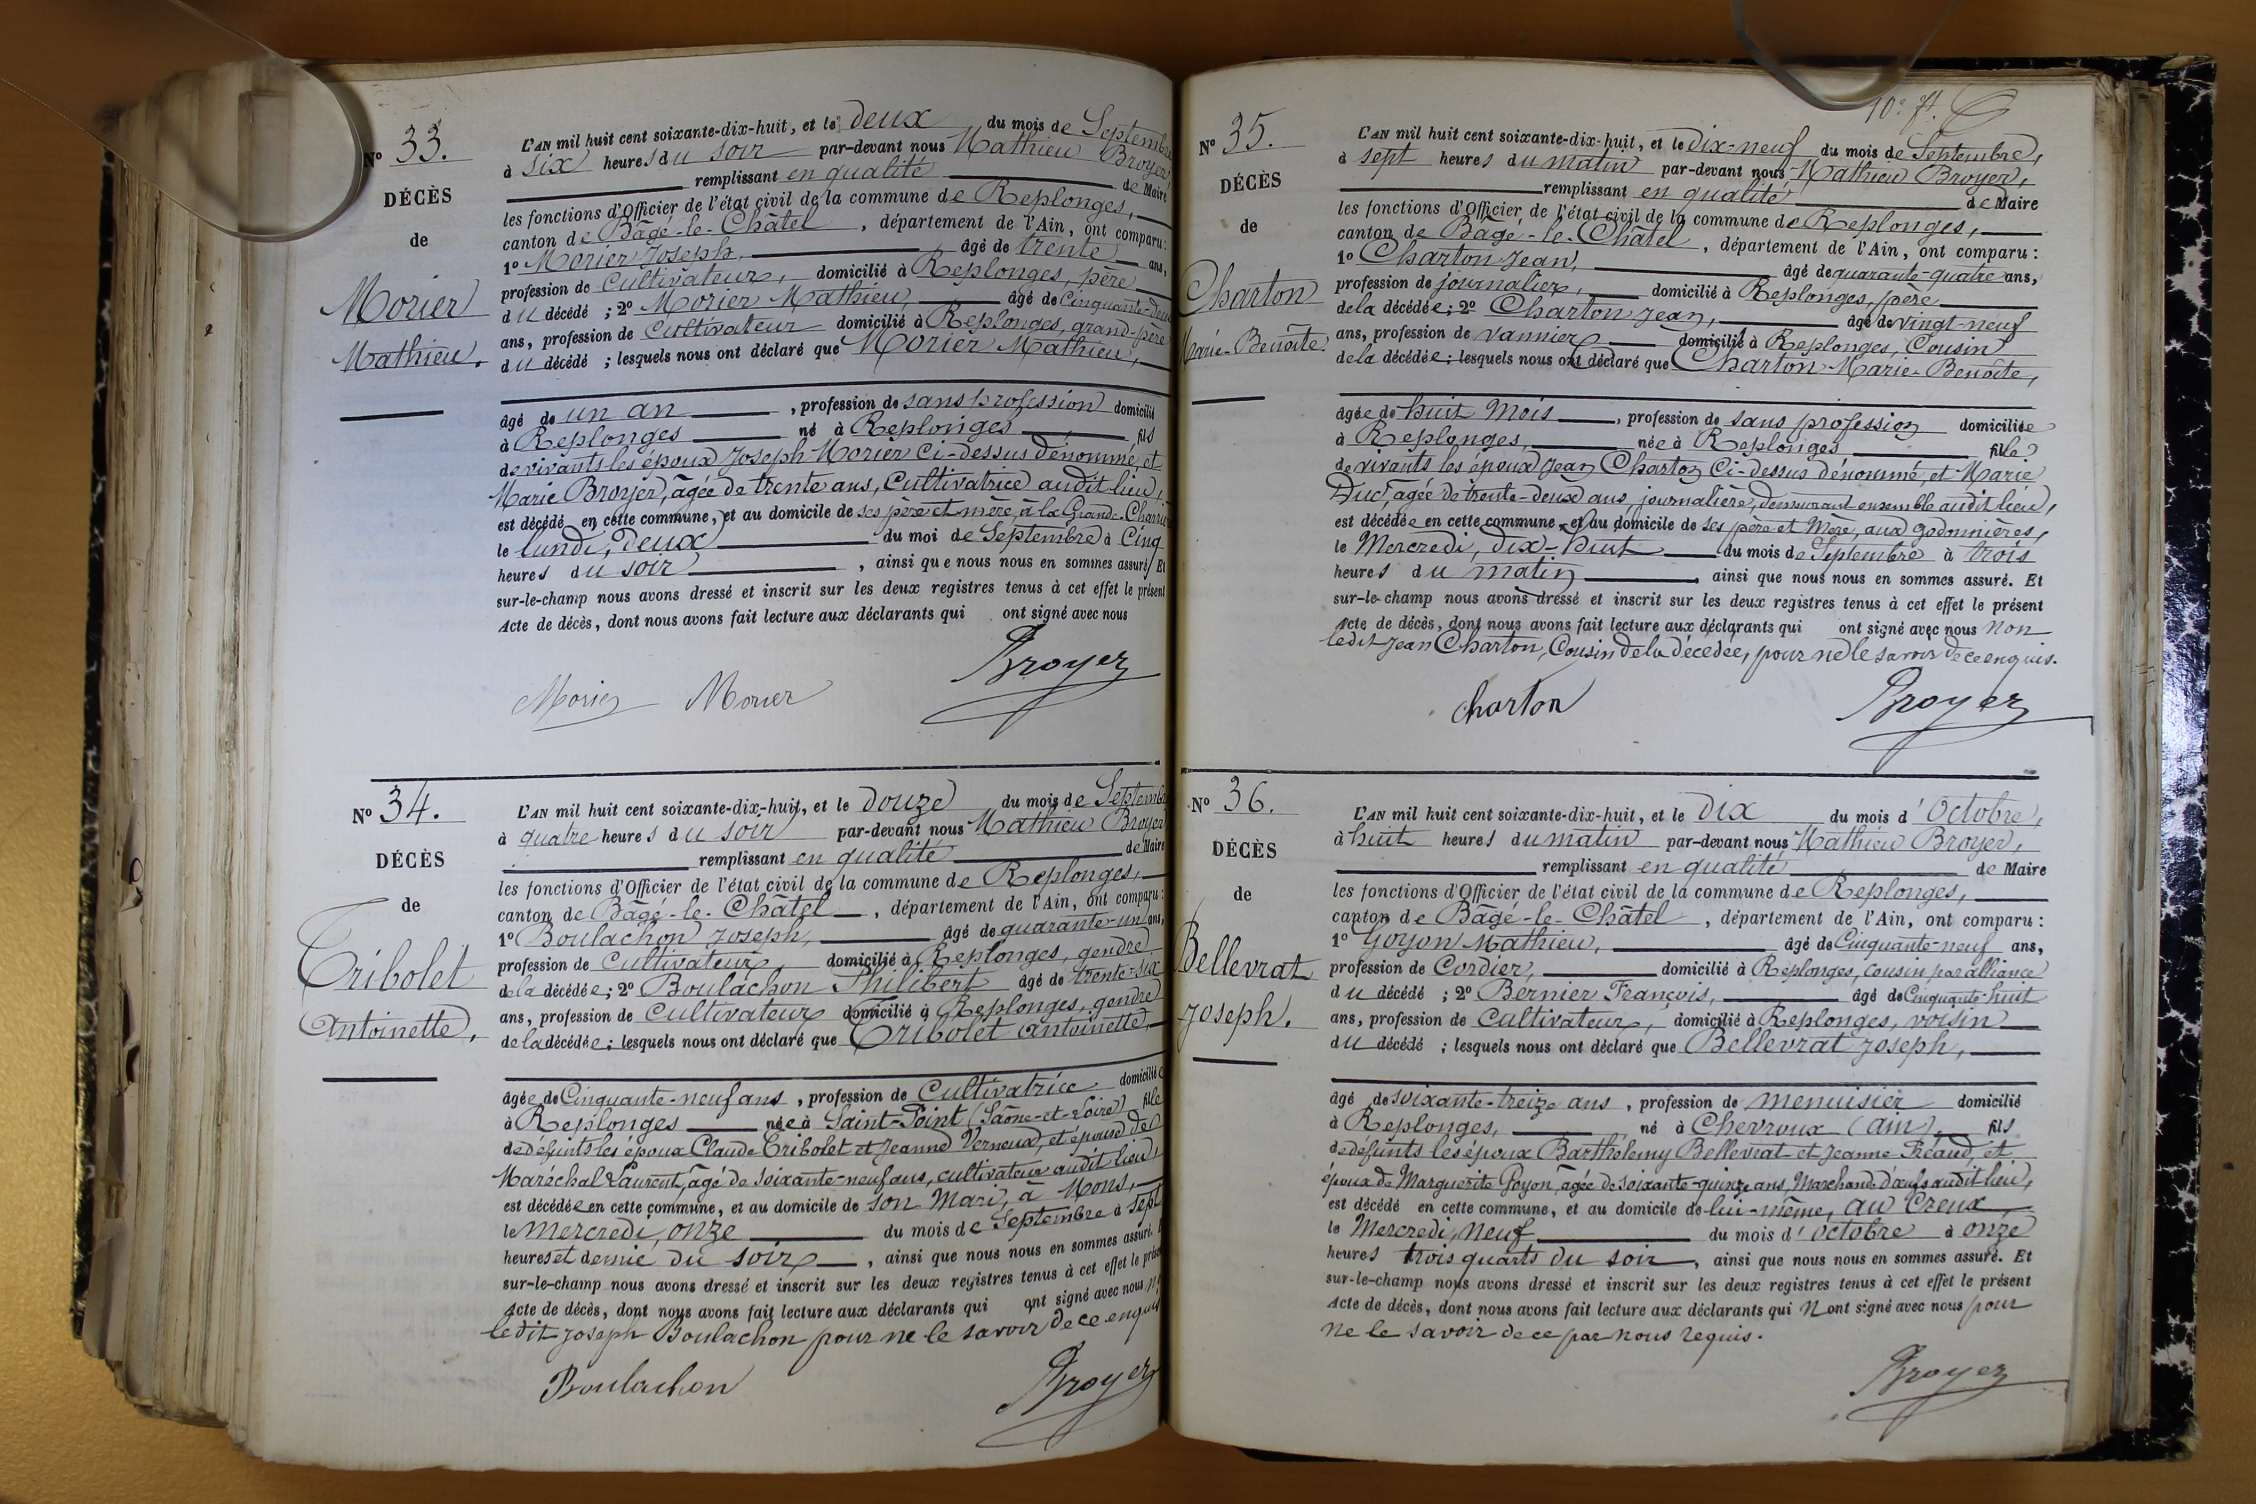 Nº 33.
DÉCÈS
de
Morier
Mathieu.
L'AN mil huit cent soixante-dix-huit, et le deux du mois de Septembre
à six heures du soir par-devant nous Mathieu Broyer
remplissant en qualité de Maire
les fonctions d'Officier de l'état civil de la commune de Replonges,
canton de Bâgé-le-Châtel, département de l'Ain, ont comparu:
1º Morier Joseph, âgé de trente ans,
profession de Cultivateur, domicilié à Replonges, père
du décédé ; 2º Morier Mathieu, âgé de Cinquante-deux
ans, profession de Cultivateur domicilié à Replonges, grand-père
du décédé ; lesquels nous ont déclaré que Morier Mathieu,
âgé de un an, profession de sans profession domicilié
à Replonges né à Replonges fils
de vivants les époux Joseph Morier Ci-dessus dénommé, et
Marie Broyer, âgée de trente ans, Cultivatrice audit lieu,
est décédé en cette commune, et au domicile de ses père et mère, à la Grande-Charrière
le lundi, deux du moi de Septembre à Cinq
heures du soir, ainsi que nous nous en sommes assuré. Et
sur-le-champ nous avons dressé et inscrit sur les deux registres tenus à cet effet le présent
Acte de décès, dont nous avons fait lecture aux déclarants qui ont signé avec nous
Morier Morier Broyer
Nº 34.
DÉCÈS
de
Tribolet
Antoinette.
L'AN mil huit cent soixante-dix-huit, et le douze du mois de Septembre
à quatre heures du soir par-devant nous Mathieu Broyer
remplissant en qualité de Maire
les fonctions d'Officier de l'état civil de la commune de Replonges,
canton de Bâgé-le-Châtel, département de l'Ain, ont comparu:
1º Boulachon Joseph, âgé de quarante-un ans,
profession de Cultivateur, domicilié à Replonges, gendre
de la décédée; 2º Boulachon Philibert âgé de trente-six
ans, profession de Cultivateur domicilié à Replonges, gendre
de la décédée; lesquels nous ont déclaré que Tribolet Antoinette,
âgée de Cinquante-neuf ans, profession de Cultivatrice domicilié
à Replonges née à Saint-Point (Saône-et-Loire) fille
de défunts les époux Claude Tribolet et Jeanne Verneux, et épouse de
Maréchal Laurent, âgé de soixante-neuf ans, cultivateur audit lieu,
est décédée en cette commune, et au domicile de son Mari, à Mons,
le Mercredi, onze du mois de Septembre à sept
heures et demie du soir, ainsi que nous nous en sommes assuré.
sur-le-champ nous avons dressé et inscrit sur les deux registres tenus à cet effet le présent
Acte de décès, dont nous avons fait lecture aux déclarants qui ont signé avec nous
ledit Joseph Boulachon pour ne le savoir de ce enquis
Boulachon Broyer
10e ft.
Nº 35.
DÉCÈS
de
Charton
Marie-Benoîte.
L'AN mil huit cent soixante-dix-huit, et le dix-neuf du mois de Septembre,
à sept heures du matin par-devant nous Mathieu Broyer,
remplissant en qualité de Maire
les fonctions d'Officier de l'état civil de la commune de Replonges,
canton de Bâgé-le-Châtel, département de l'Ain, ont comparu:
1º Charton Jean, âgé de quarante-quatre ans,
profession de journalier, domicilié à Replonges, père
de la décédée; 2º Charton Jean, âgé de vingt-neuf
ans, profession de vannier domicilié à Replonges, Cousin
de la décédée; lesquels nous ont déclaré que Charton Marie-Benoîte,
âgée de huit Mois, profession de sans profession domiciliée
à Replonges, née à Replonges fille
de vivants les époux Jean Charton Ci-dessus dénommé, et Marie
Duc, âgée de trente-deux ans, journalière, demeurant ensemble audit lieu,
est décédée en cette commune, et au domicile de ses père et Mère, aux godonnières,
le Mercredi, dix-huit du mois de Septembre à trois
heures du matin, ainsi que nous nous en sommes assuré. Et
sur-le-champ nous avons dressé et inscrit sur les deux registres tenus à cet effet le présent
Acte de décès, dont nous avons fait lecture aux déclarants qui ont signé avec nous non
ledit Jean Charton, Cousin de la décédée, pour ne le savoir de ce enquis.
Charton Broyer
Nº 36.
DÉCÈS
de
Bellevrat
Joseph.
L'AN mil huit cent soixante-dix-huit, et le Dix du mois d'Octobre,
à huit heures du matin par-devant nous Mathieu Broyer,
remplissant en qualité de Maire
les fonctions d'Officier de l'état civil de la commune de Replonges,
canton de Bâgé-le-Châtel, département de l'Ain, ont comparu:
1º Goyon Mathieu, âgé de Cinquante-neuf ans,
profession de Cordier, domicilié à Replonges, cousin par alliance
du décédé ; 2º Bernier François, âgé de Cinquante-huit
ans, profession de Cultivateur, domicilié à Replonges, voisin
du décédé ; lesquels nous ont déclaré que Bellevrat Joseph,
âgé de soixante-treize ans, profession de menuisier domicilié
à Replonges, né à Chevroux (Ain), fils
de défunts les époux Barthélemy Bellevrat et Jeanne Fréaud, et
époux de Marguerite Goyon, âgée de soixante-quinze ans, Marchande d'œufs audit lieu,
est décédé en cette commune, et au domicile de lui-même, au Creux,
le Mercredi, Neuf du mois d'Octobre à onze
heures trois quarts du soir, ainsi que nous nous en sommes assuré. Et
sur-le-champ nous avons dressé et inscrit sur les deux registres tenus à cet effet le présent
Acte de décès, dont nous avons fait lecture aux déclarants qui N ont signé avec nous pour
ne le savoir de ce par nous requis.
Broyer